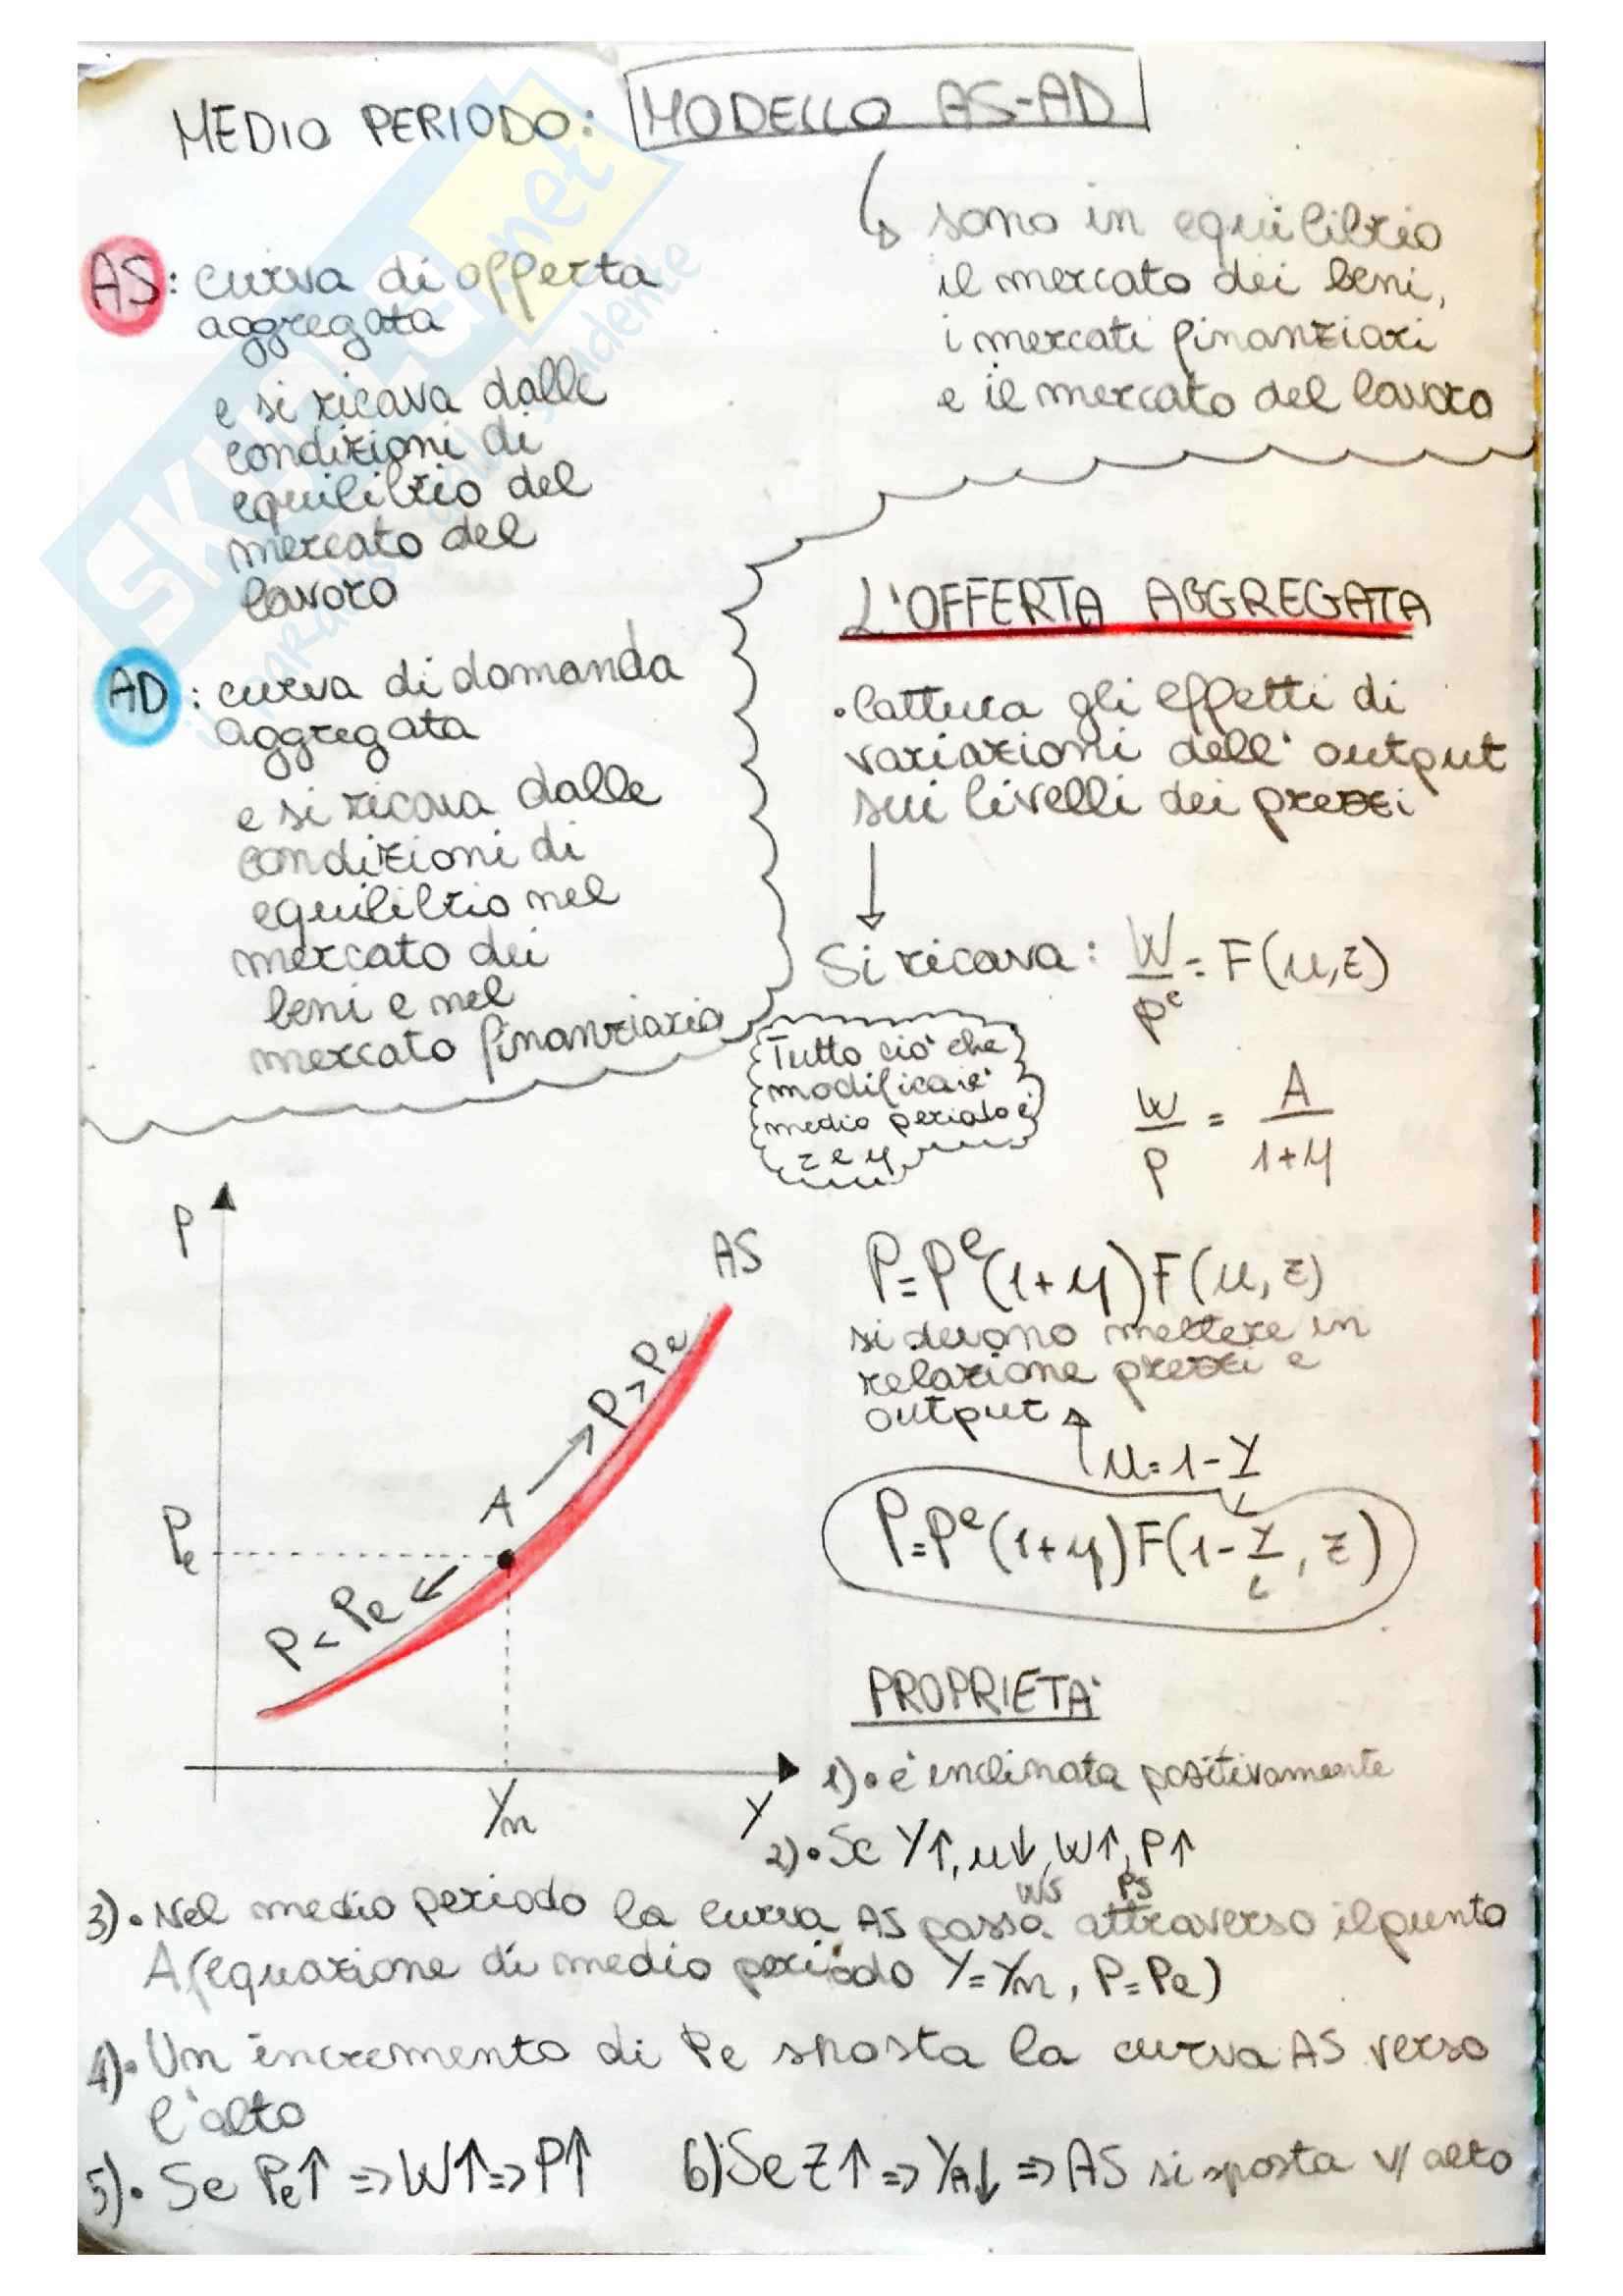 MEDIO PERIODO: MODELLO AS-AD
sono in equilibrio
il mercato dei beni,
i mercati finanziari
e il mercato del lavoro
AS: curva di offerta
aggregata
e si ricava dalle
condizioni di
equilibrio del
mercato del
lavoro
AD: curva di domanda
aggregata
e si ricava dalle
condizioni di
equilibrio nel
mercato dei
beni e nel
mercato finanziario
L'OFFERTA AGGREGATA
• Cattura gli effetti di
variazioni dell'output
sui livelli dei prezzi
↓
Si ricava: W/P^e = F(u,z)
Tutto ciò che
modifica il
medio periodo è
z e μ
W/P = A/1+μ
P=P^e(1+μ)F(u,z)
si devono mettere in
relazione prezzi e
output
u=1-Y
P=P^e(1+μ)F(1-Y/L, z)
P
AS
P>Pe
A
Pe
P<Pe
Yn
Y
PROPRIETA'
1)• è inclinata positivamente
2)• Se Y↑, u↓, W↑, P↑
WS PS
3)• Nel medio periodo la curva AS passa attraverso il punto
A (equazione di medio periodo Y=Yn, P=Pe)
4)• Un incremento di Pe sposta la curva AS verso
l'alto
5)• Se Pe↑ => W↑ => P↑
6) Se Z↑ => YA↓ => AS si sposta v/ alto
SKUOLA.net